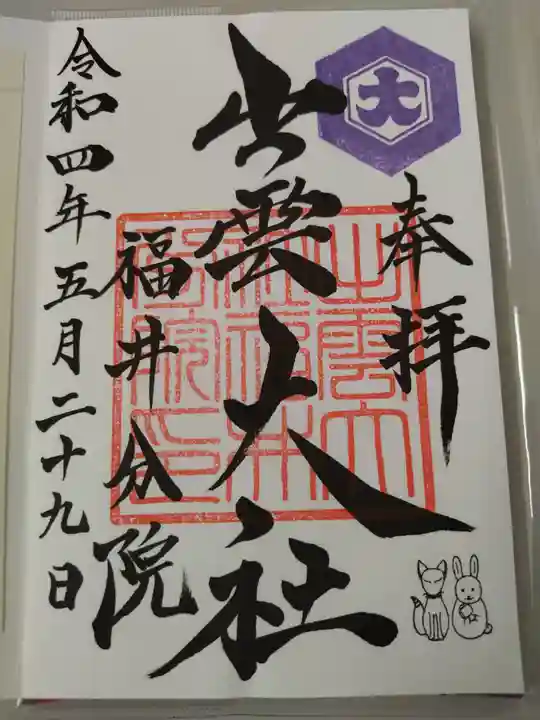 大
奉拝
出雲大社
出雲大
社福井
分院印
福井分院
令和四年五月二十九日